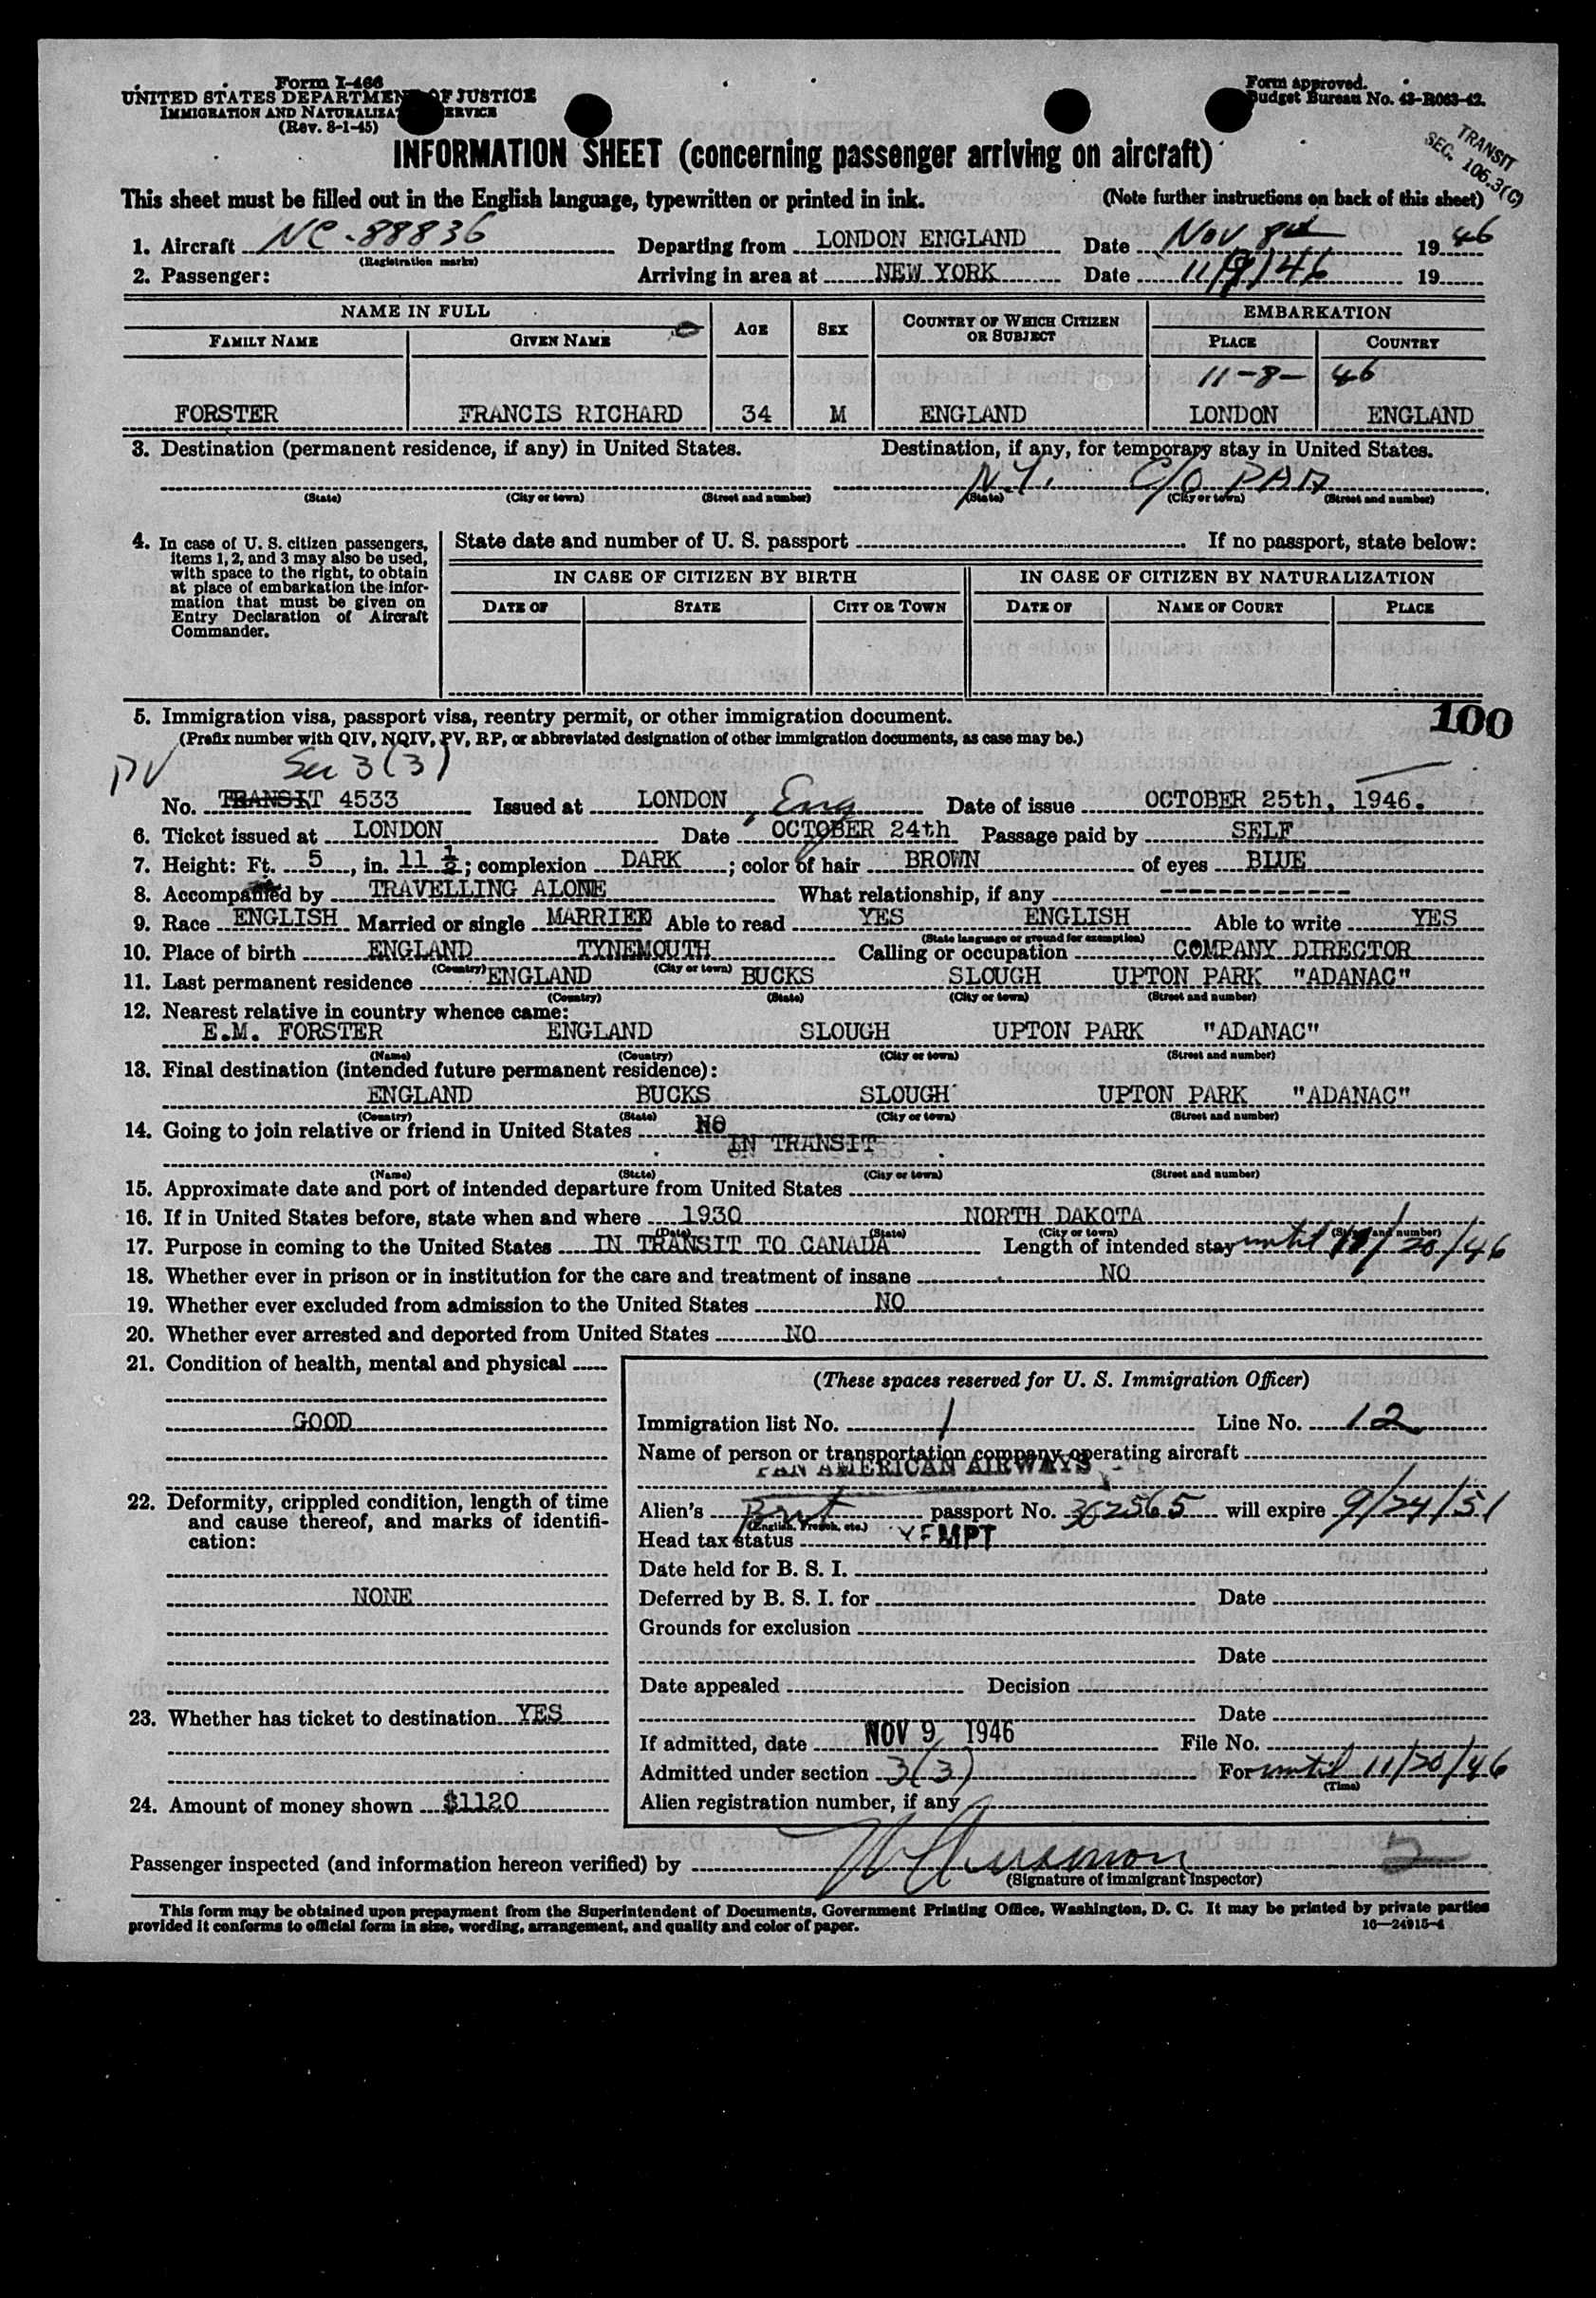 Form I-466
UNITED STATES DEPARTMENT OF JUSTICE
IMMIGRATION AND NATURALIZATION SERVICE
(Rev. 8-1-45)
Form approved.
Budget Bureau No. 43-R063-42.
TRANSIT
SEC. 106.3(C)
INFORMATION SHEET (concerning passenger arriving on aircraft)
This sheet must be filled out in the English language, typewritten or printed in ink. (Note further instructions on back of this sheet)
1. Aircraft NC-88836 Departing from LONDON ENGLAND Date Nov 8th 1946
(Registration marks)
2. Passenger: Arriving in area at NEW YORK Date 11/9/46 19
NAME IN FULL AGE SEX COUNTRY OF WHICH CITIZEN OR SUBJECT EMBARKATION
FAMILY NAME GIVEN NAME PLACE COUNTRY
11-8-46
FORSTER FRANCIS RICHARD 34 M ENGLAND LONDON ENGLAND
3. Destination (permanent residence, if any) in United States. Destination, if any, for temporary stay in United States.
N.Y. C/O PAA
(State) (City or town) (Street and number) (State) (City or town) (Street and number)
4. In case of U. S. citizen passengers, items 1, 2, and 3 may also be used, with space to the right, to obtain at place of embarkation the information that must be given on Entry Declaration of Aircraft Commander.
State date and number of U. S. passport If no passport, state below:
IN CASE OF CITIZEN BY BIRTH IN CASE OF CITIZEN BY NATURALIZATION
DATE OF STATE CITY OR TOWN DATE OF NAME OF COURT PLACE
5. Immigration visa, passport visa, reentry permit, or other immigration document. 100
(Prefix number with QIV, NQIV, PV, RP, or abbreviated designation of other immigration documents, as case may be.)
PV Sec 3(3)
No. TRANSIT 4533 Issued at LONDON, Eng Date of issue OCTOBER 25th, 1946.
6. Ticket issued at LONDON Date OCTOBER 24th Passage paid by SELF
7. Height: Ft. 5, in. 11 ½; complexion DARK; color of hair BROWN of eyes BLUE
8. Accompanied by TRAVELLING ALONE What relationship, if any --------------
9. Race ENGLISH Married or single MARRIED Able to read YES ENGLISH Able to write YES
(State language or ground for exemption)
10. Place of birth ENGLAND TYNEMOUTH Calling or occupation COMPANY DIRECTOR
(Country) (City or town)
11. Last permanent residence ENGLAND BUCKS SLOUGH UPTON PARK "ADANAC"
(Country) (State) (City or town) (Street and number)
12. Nearest relative in country whence came:
E.M. FORSTER ENGLAND SLOUGH UPTON PARK "ADANAC"
(Name) (Country) (City or town) (Street and number)
13. Final destination (intended future permanent residence):
ENGLAND BUCKS SLOUGH UPTON PARK "ADANAC"
(Country) (State) (City or town) (Street and number)
14. Going to join relative or friend in United States NO
IN TRANSIT
(Name) (State) (City or town) (Street and number)
15. Approximate date and port of intended departure from United States
16. If in United States before, state when and where 1930 NORTH DAKOTA
(Date) (State) (City or town) (Street and number)
17. Purpose in coming to the United States IN TRANSIT TO CANADA Length of intended stay until 11/20/46
18. Whether ever in prison or in institution for the care and treatment of insane NO
19. Whether ever excluded from admission to the United States NO
20. Whether ever arrested and deported from United States NO
21. Condition of health, mental and physical
GOOD
22. Deformity, crippled condition, length of time and cause thereof, and marks of identification:
NONE
23. Whether has ticket to destination YES
24. Amount of money shown $1120
(These spaces reserved for U. S. Immigration Officer)
Immigration list No. 1 Line No. 12
Name of person or transportation company operating aircraft
PAN AMERICAN AIRWAYS
Alien's Brit passport No. 362565 will expire 9/24/51
(English, French, etc.)
Head tax status XEMPT
Date held for B. S. I.
Deferred by B. S. I. for Date
Grounds for exclusion
Date
Date appealed Decision
Date
If admitted, date NOV 9 1946 File No.
Admitted under section 3(3) For until 11/20/46
(Time)
Alien registration number, if any
Passenger inspected (and information hereon verified) by
(Signature of immigrant inspector)
2
This form may be obtained upon prepayment from the Superintendent of Documents, Government Printing Office, Washington, D. C. It may be printed by private parties
provided it conforms to official form in size, wording, arrangement, and quality and color of paper. 16—24915-4